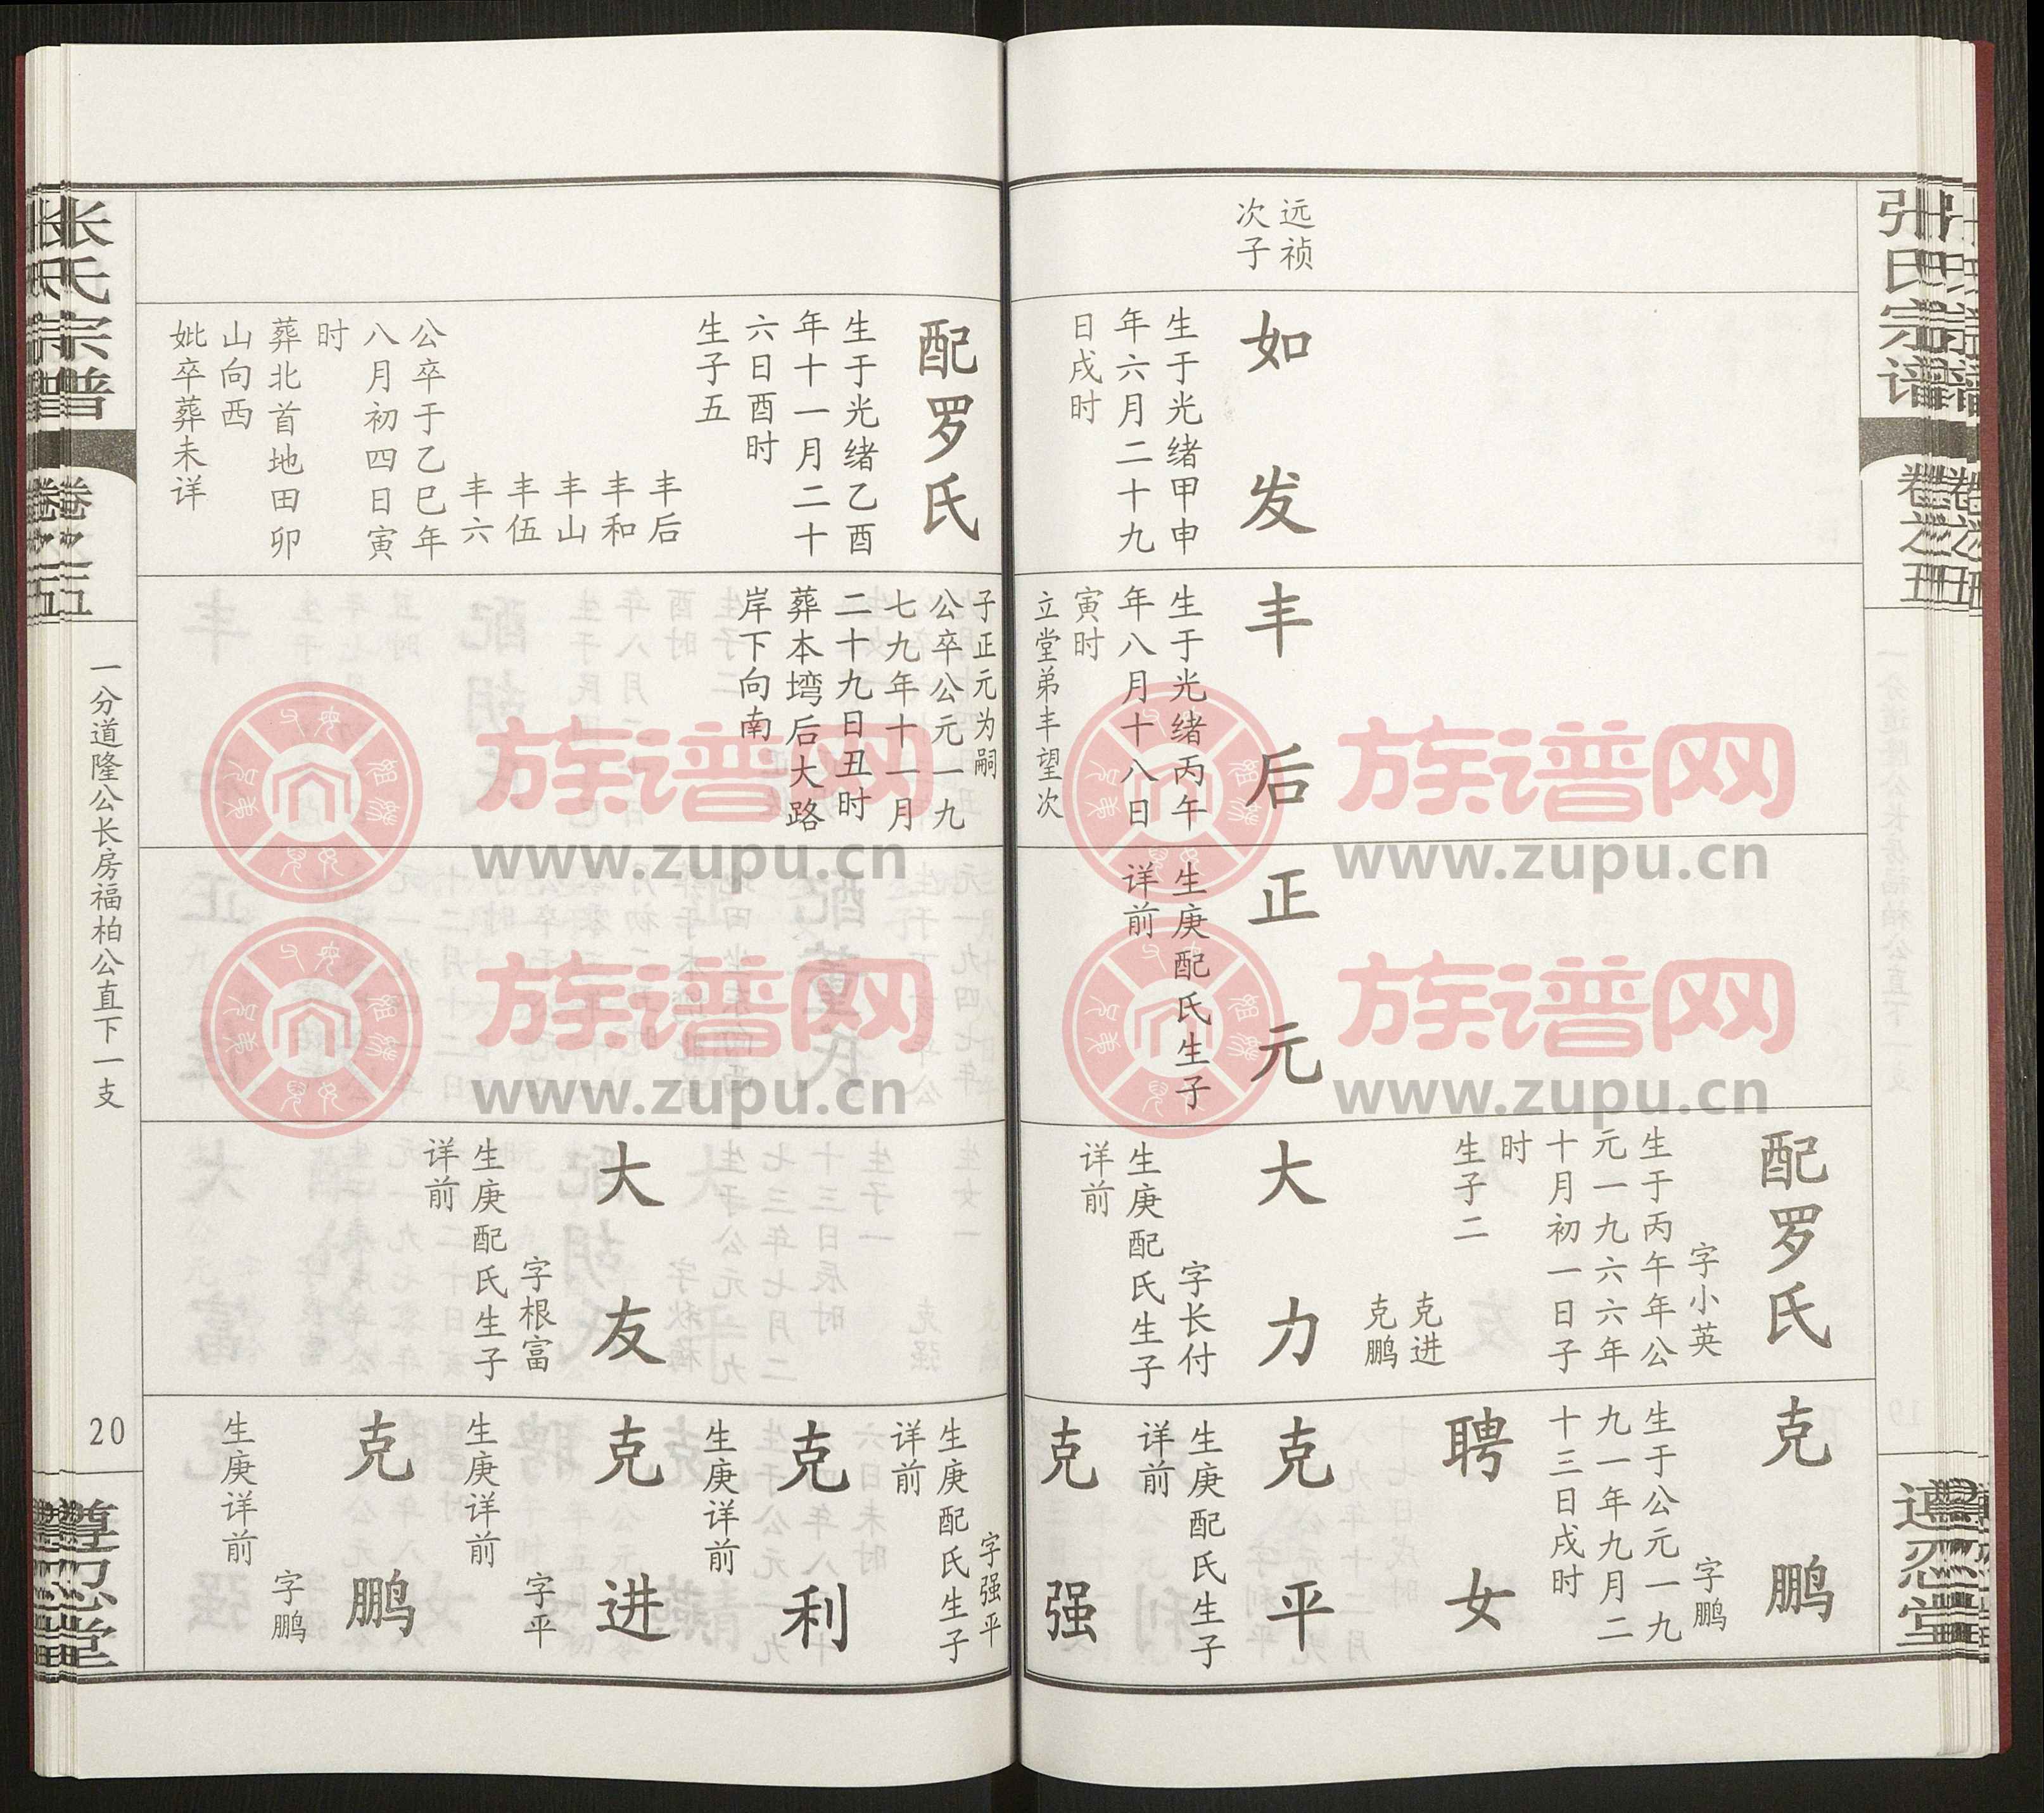 张氏宗谱
卷之五
遵忍堂
远祯
次子
如发
生于光绪甲申
年六月二十九
日戌时
丰后
生于光绪丙午
年八月十八日
寅时
立堂弟丰望次
正元
生庚配氏生子
详前
配罗氏
字小英
生于丙午年公
元一九六六年
十月初一日子
时
生子二
克进
克鹏
大力
字长付
生庚配氏生子
详前
克鹏
字鹏
生于公元一九
九一年九月二
十三日戌时
聘女
克平
生庚配氏生子
详前
克强
配罗氏
生于光绪乙酉
年十一月二十
六日酉时
生子五
丰后
丰和
丰山
丰伍
丰六
公卒于乙巳年
八月初四日寅
时
葬北首地田卯
山向西
妣卒葬未详
子正元为嗣
公卒公元一九
七九年十一月
二十九日丑时
葬本塆后大路
岸下向南
大友
字根富
生庚配氏生子
详前
字强平
生庚配氏生子
详前
克利
生庚详前
克进
字平
生庚详前
克鹏
字鹏
生庚详前
张氏宗谱
卷之五
一分道隆公长房福柏公直下一支
20
遵忍堂
族谱网
www.zupu.cn
族谱网
www.zupu.cn
族谱网
www.zupu.cn
族谱网
www.zupu.cn